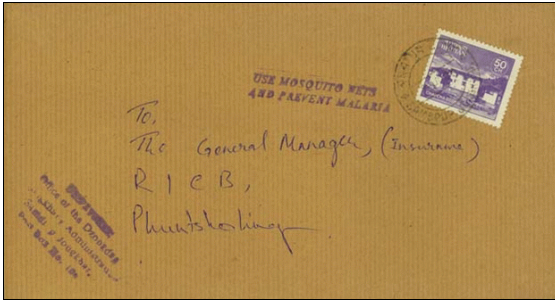 USE MOSQUITO NETS
AND PREVENT MALARIA
50
To,
The General Manager, (Insurance)
RICB,
Phuntsholing
Office of the Dzongdag
Administration
Samdrup Jongkhar,
Post Box No.